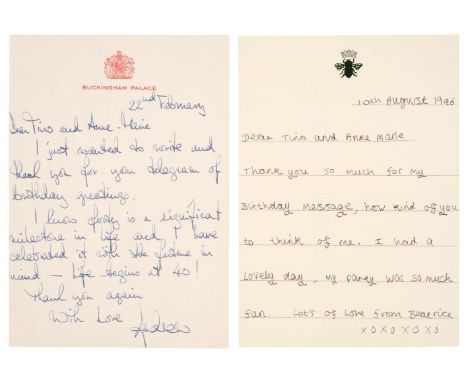 BUCKINGHAM PALACE
22nd February
Dear Tino and Anne-Marie
I just wanted to write and
thank you for your telegram of
birthday greetings.
I know forty is a significant
milestone in life and I have
celebrated it with the future in
mind - life begins at 40!
Thank you again
With Love
Andrew
10th August 1996
Dear Tino and Anne Marie
Thank you so much for my
Birthday message, how kind of you
to think of me. I had a
lovely day, my party was so much
fun. Lots of Love from Beatrice
XOXOXOXO